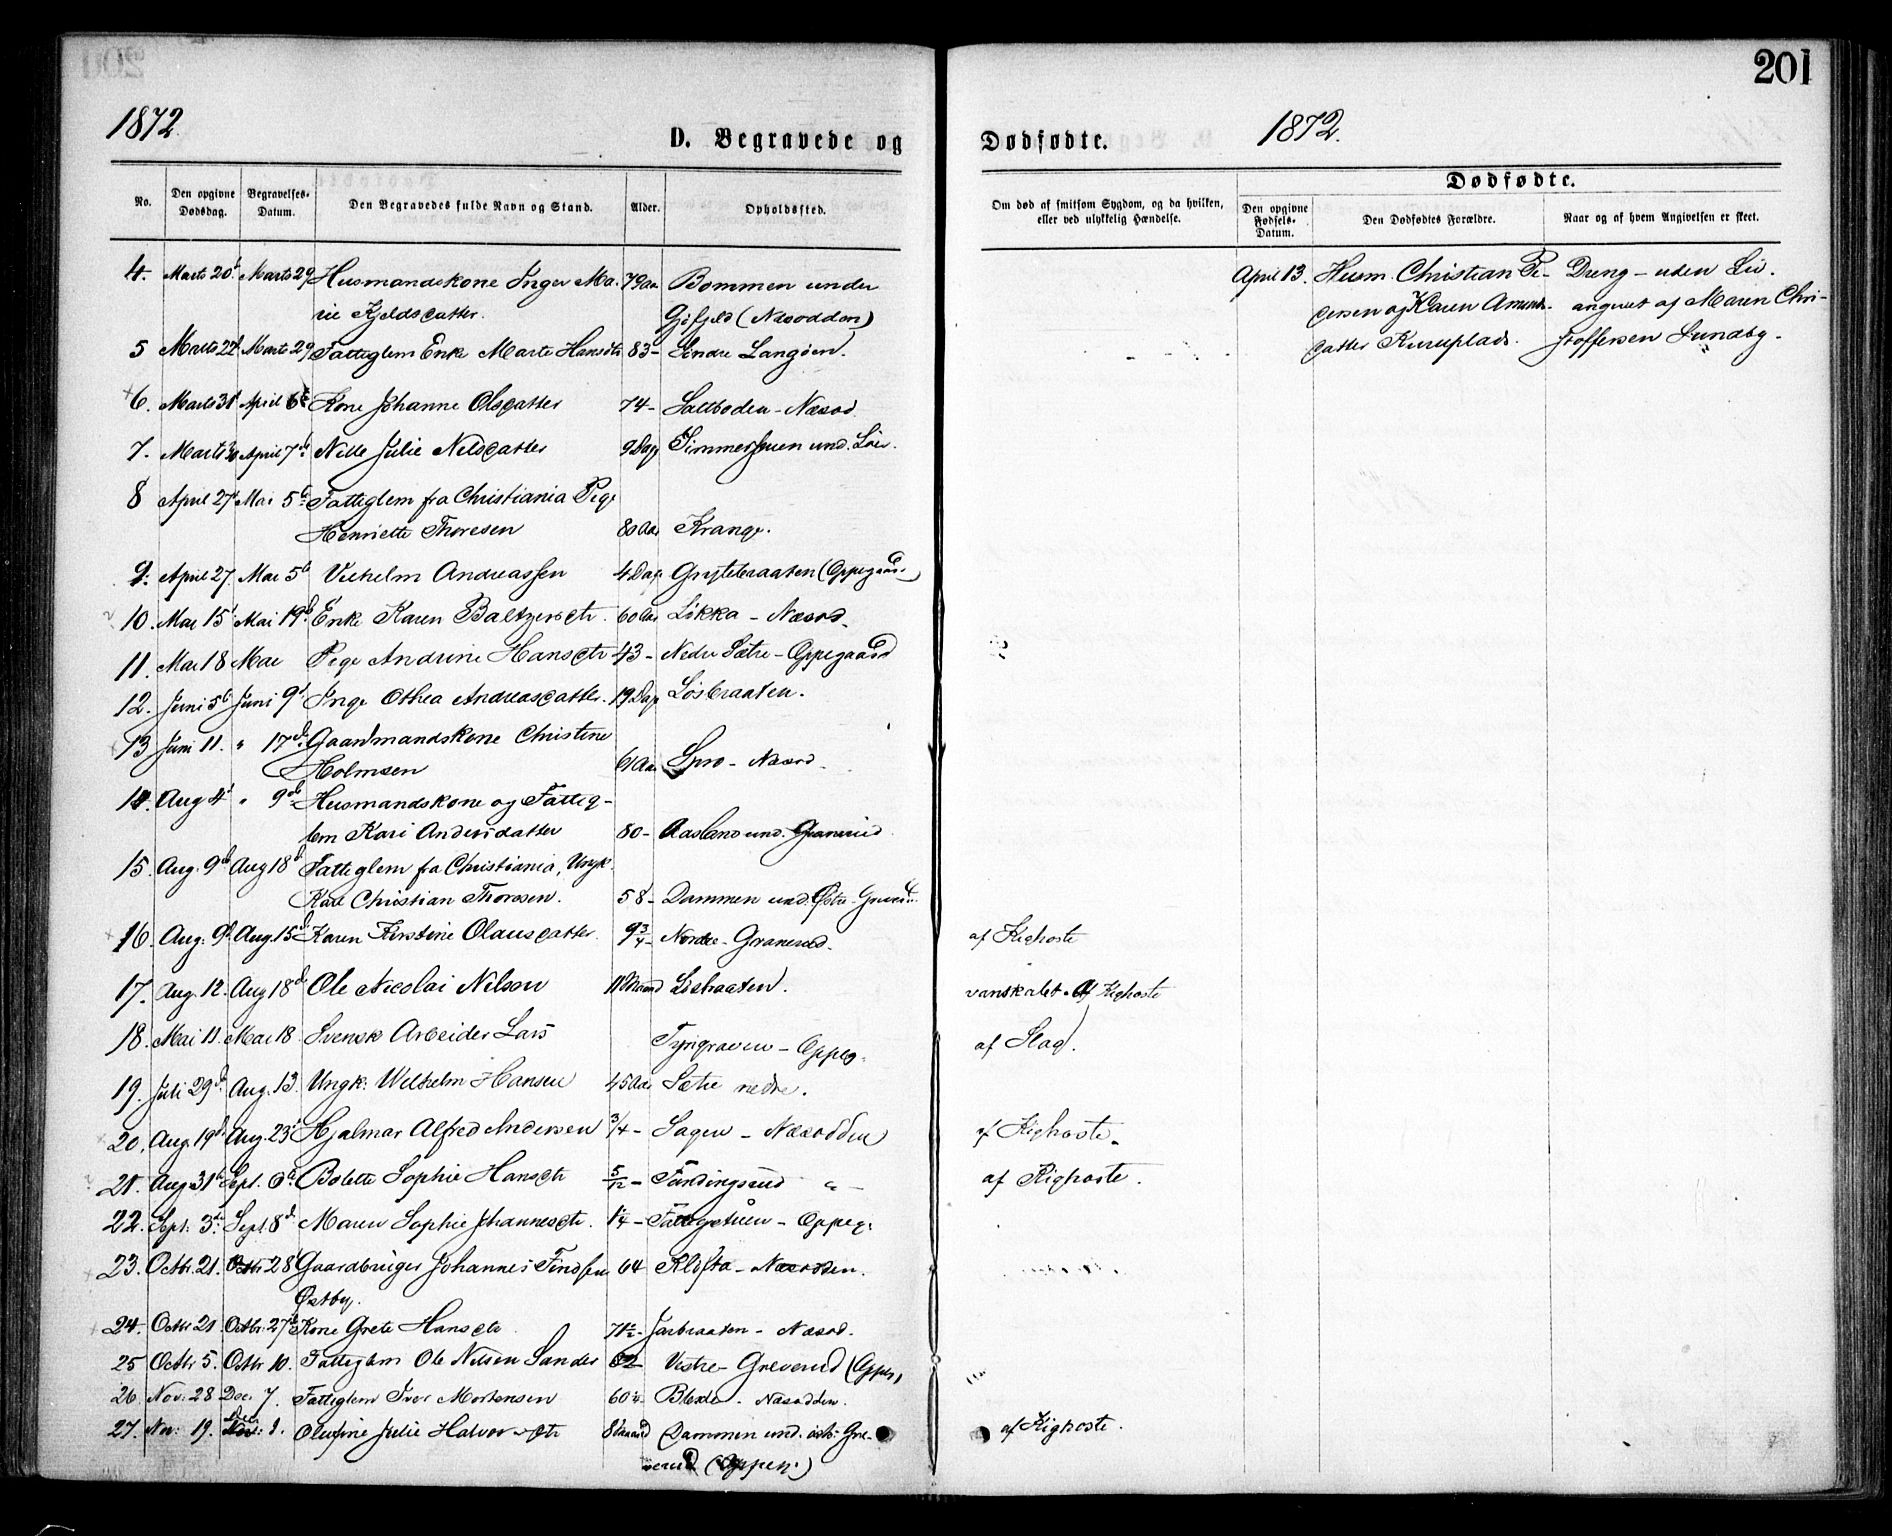 201
1872.
D. Begravede og
Dødfødte.
1872.
No.
Den opgivne Dødsdag.
Begravelses-Datum.
Den Begravedes fulde Navn og Stand.
Alder.
Opholdssted.
Om død af smitsom Sygdom, og da hvilken, eller ved ulykkelig Hændelse.
Dødfødte.
Den opgivne Fødsels-Datum.
Den Dødfødtes Forældre.
Naar og af hvem Angivelsen er skeet.
4. Marts 20 Marts 29 Husmandskone Inger Ma- 79 Aar Bommen under
rie Kjeldsdatter. (Næsodden)
April 13. Husm. Christian Pe- Dreng - uden Liv.
dersen og Karen Amund- angivet af Maren Chri-
datter stoffersen Sundby.
5 Marts 22 Marts 29 Fatteglem Enke Marte Hansdtr 83- Søndre Langøen.
6. Marts 31 April 6 Kone Johanne Olsdatter 74- Saltboden - Næsod.
7. Marts April 7 Nille Julie Nilsdatter 9 Dage und.
8 April 27 Mai 5 Fatteglem fra Christiania Pige
Henriette Thoresen 80 Aar Krange.
9. April 27 Mai 5 Vilhelm Andreassen 4 Dage Grytebraaten (Oppegaard)
10. Mai 15 Mai 19 Enke Karen Baltzersdtr. 60 Aar Løkka - Næsod.
11. Mai 18 Mai Pige Andrine Hansdtr 43- Nedre Sætre - Oppegaard
12. Juni 5 Juni 9 Inga Othea Andreasdatter. 19 Dage Løsbraaten.
13 Juni 11. " 17 Gaardmandskone Christine
Holmsen 61 Aar Spro - Næsod.
14. Aug 4 " 9 Husmandskone og Fatteg-
lem Kari Andersdatter 80- Aasland und. Granerud
15. Aug. 9 Aug 18 Fatteglem fra Christiania, Ungk.
Karl Christian Thoresen. 58- Dammen und. Østre Greverud
16. Aug. 9 Aug. 15 Karen Kirstine Olausdatter. 9 3/4- Nordre - Granerud. af Kighoste
17. Aug. 12. Aug 18 Ole Nicolai Nilsen 11 Maaned vanskabt. Af Kighoste
18. Mai 11. Mai 18 Svensk Arbeider Lars Tyrigraven - Oppeg. af Slag.
19. Juli 29 Aug. 13. Ungk. Wilhelm Hansen 45 Aar Sætre nedre.
20. Aug. 19 Aug. 23 Hjalmar Alfred Andersen 3/4- Sagen - Næsodden af Kighoste.
21. Aug. 31 Sept. 6 Bolette Sophie Hansdtr 5/12- " af Kighoste.
22. Sept. 3 Sept. 8 Maren Sophie Johannesdtr. 1/4- - Oppeg.
23. Octbr. 21. Octbr 28 Gaardbruger Johannes Findsen 64 Kløfta - Næsodden.
Østby.
24. Octbr 21. Octbr. 27 Kone Grete Hansdtr 71 1/2- Jarbraaten - Næsod.
25 Octbr 5. Octbr 10. Fatteglem Ole Nilsen Sander 82 Vestre - Greverud (Oppeg)
26. Nov. 28 Dec. 7. Fatteglem Iver Mortensen 60 1/2 - Næsodden.
27. Nov. 19. Dec. 1. Olufine Julie Halvorsdtr 8 Maaned Dammen und. østr. Gre- af Kighoste.
verud (Oppeg.)